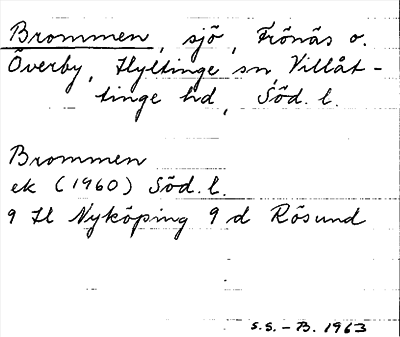 Brommen, sjö, Frönäs o.
Överby, Hyltinge sn, Villåt-
tinge hd, Söd. l.
Brommen
ek (1960) Söd. l.
9 H Nyköping 9 d Rösund
S.S. - B. 1963